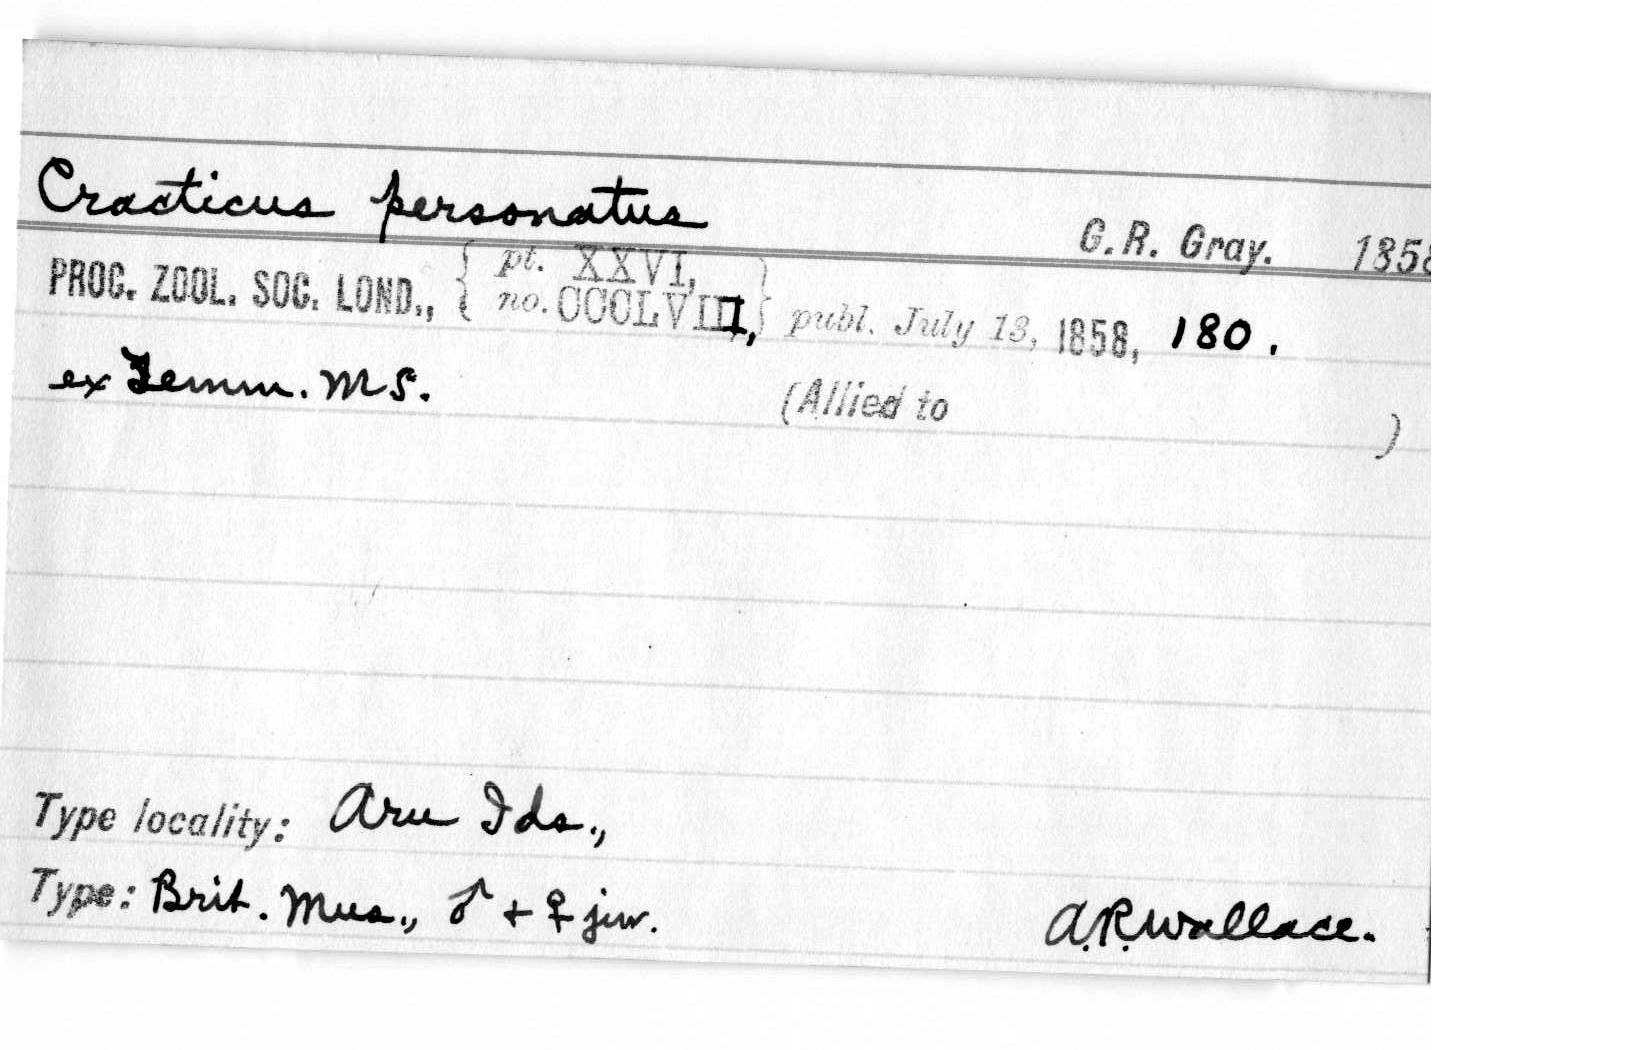 Cracticus personatus G.R. Gray. 1858
PROC. ZOOL. SOC. LOND., { pt. XXVI, no. CCCLVIII, } publ. July 13, 1858, 180.
ex Temm. MS. (Allied to )
Type locality: Aru Ids.,
Type: Brit. Mus., ♂ + ♀ juv. A.R. Wallace.